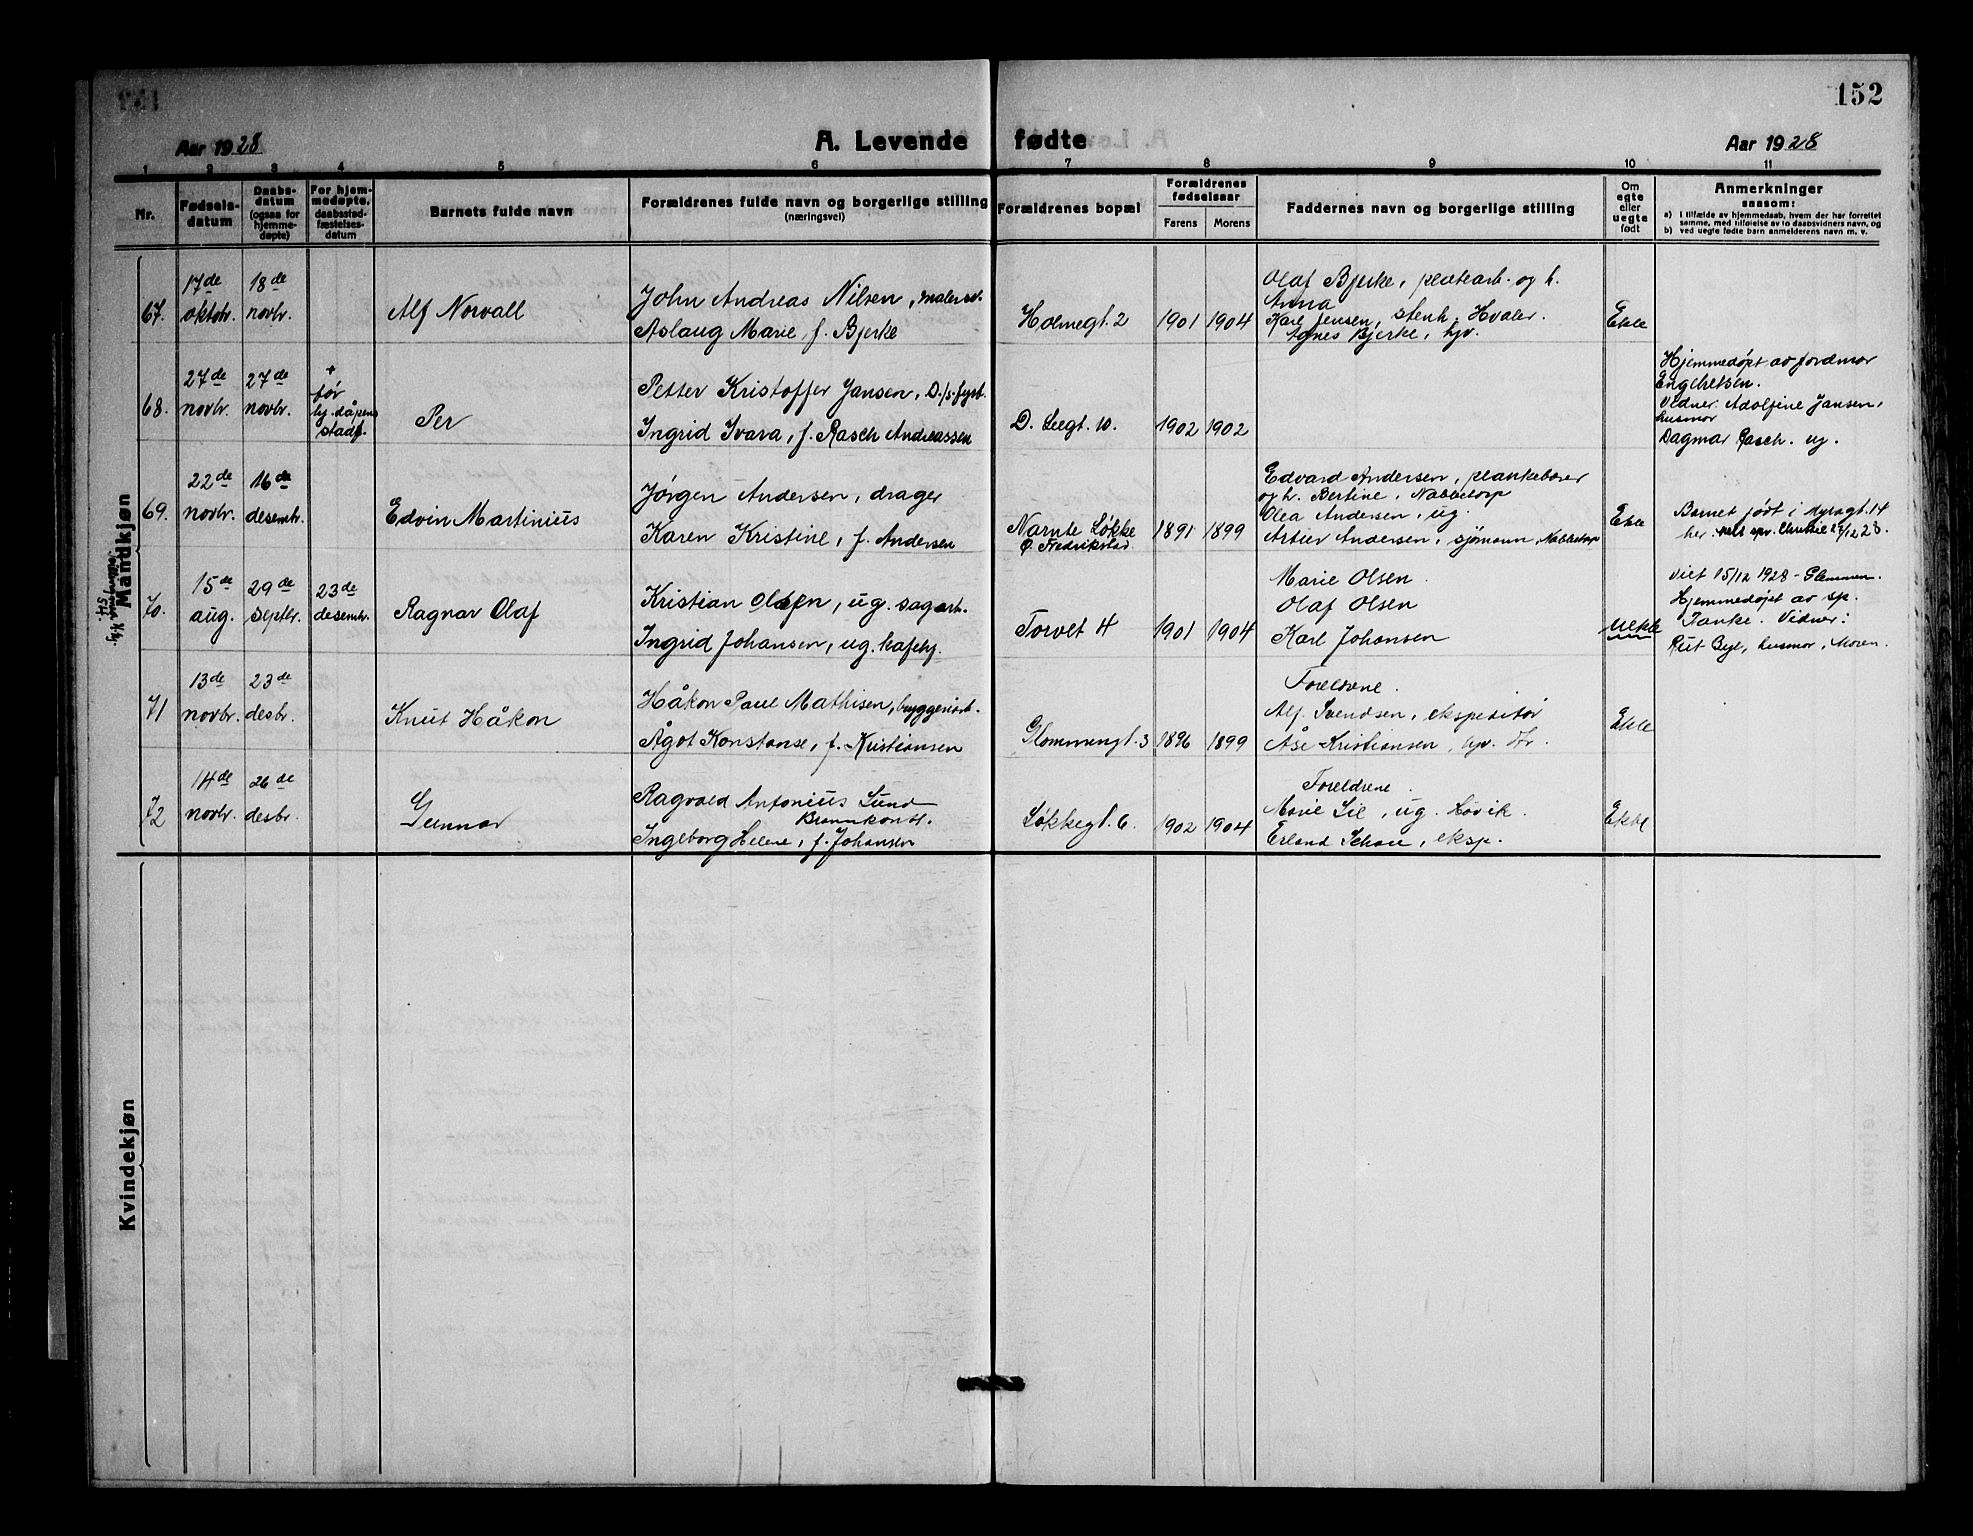 152
Aar 1928
A. Levende fødte
Aar 1928
1 2 3 4 5 6 7 8 9 10 11
Nr.
Fødsels-
datum
Daabs-
datum
(ogsaa for
hjemme-
døpte)
For hjem-
medøpte,
daabsstad-
fæstelses-
datum
Barnets fulde navn
Forældrenes fulde navn og borgerlige stilling
(næringsvei)
Forældrenes bopæl
Forældrenes
fødselsaar
Farens Morens
Faddernes navn og borgerlige stilling
Om
egte
eller
uegte
født
Anmerkninger
saasom:
a) i tilfælde av hjemmedaab, hvem der har forrettet
samme, med tilføielse av to daabsvidners navn, og
b) ved uegte fødte barn anmelderens navn m. v.
Mandkjøn
67.
17de
oktobr.
18de
novbr.
Alf Norvall
John Andreas Nilsen, malersv.
Aslaug Marie, f. Bjerke
Holmegt. 2
1901 1904
Olaf Bjerke, platearb. og h.
Anna
Karl Jensen, stenh. Hvaler.
Agnes Bjerke, hjv.
Ekte
68.
27de
novbr.
27de
novbr.
+
før
hj. dåpens
stadf.
Per
Petter Kristoffer Jansen, D/s. fyrb.
Ingrid Ivara, f. Rasch Andreassen
D. Leegt. 10.
1902 1902
Hjemmedøpt av jordmor
Engebretsen.
Vidner: Adolfine Jansen,
husmor
Dagmar Rasch. ug.
69.
22de
novbr.
16de
desembr.
Edvin Martinius
Jørgen Andersen, drager
Karen Kristine, f. Andersen
Narnte Løkke
Ø. Fredrikstad.
1891 1899
Edvard Andersen, plankebærer
og h. Bertine, Nabbetorp
Olea Andersen, ug.
Andersen, sjømann, Nabbetorp
Ekte
Barnet født i Myragt. 14
her. 27/12 28.
70.
15de
aug.
29de
septbr.
23de
desembr.
Ragnar Olaf
Kristian Olsen, ug. sagarb.
Ingrid Johansen, ug. kafehj.
Torvet 4
1901 1904
Marie Olsen.
Olaf Olsen
Karl Johansen
Uekte
Viet 15/12 1928 - Glemmen.
Hjemmedøpt av sp.
Tanke. Vidner:
Rut Bye, husmor, Moren.
71
13de
novbr.
23de
desbr.
Knut Håkon
Håkon Paul Mathisen, bryggeriarb.
Ågot Konstanse, f. Kristiansen
Glommengt. 3
1896 1899
Foreldrene.
Alf. Svendsen, ekspeditør
Åse Kristiansen, hjv. Hr.
Ekte
72
14de
novbr.
26de
desbr.
Gunnar
Ragvald Antonius Lund
Brannkonst.
Ingeborg Helene, f. Johansen
Løkkegt. 6.
1902 1904
Foreldrene.
Marie Lie, ug. Høvik.
Erland Schau, eksp.
Ekte
Kvindekjøn